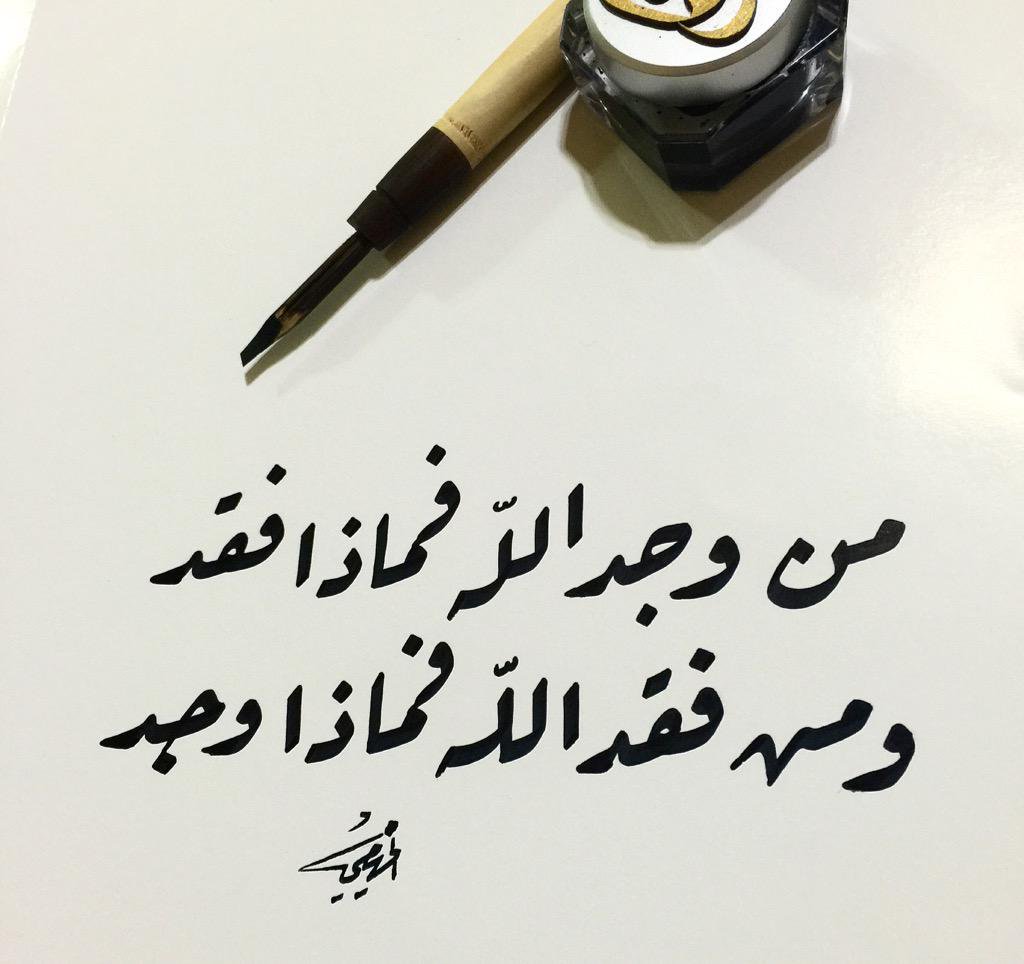 من وجد الله فماذا فقد
ومن فقد الله فماذا وجد